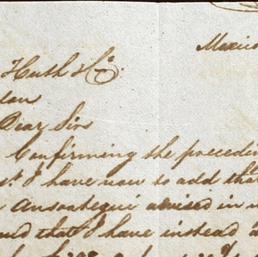 Mexico
Huth & Co.
Dear Sir
Confirming the precedi
I have now to add tha
advised in
that I have instead